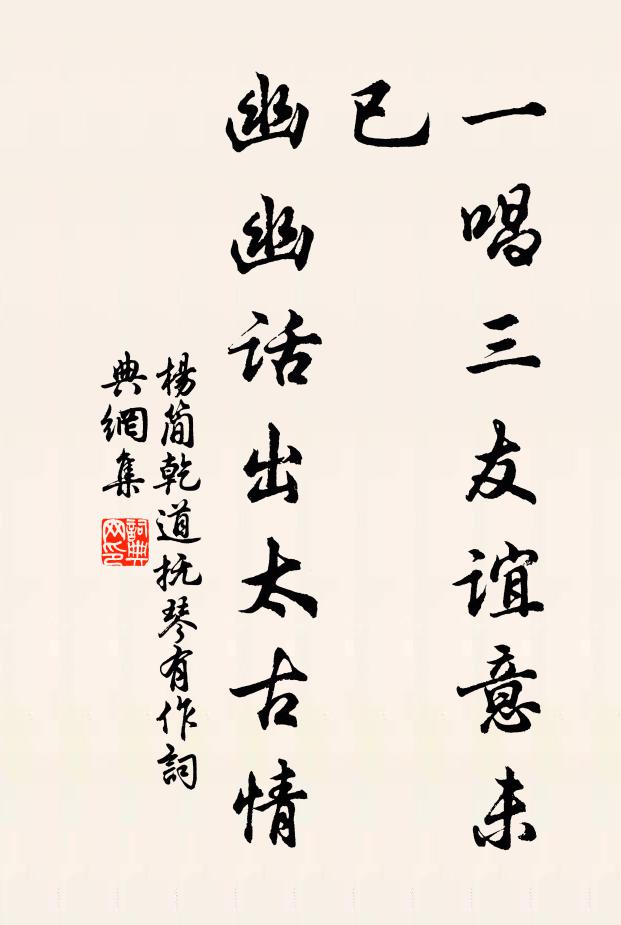 一唱三友誼意未
已
幽幽話出太古情
楊简乾道抚琴有作詞
典網集
詞典
网印